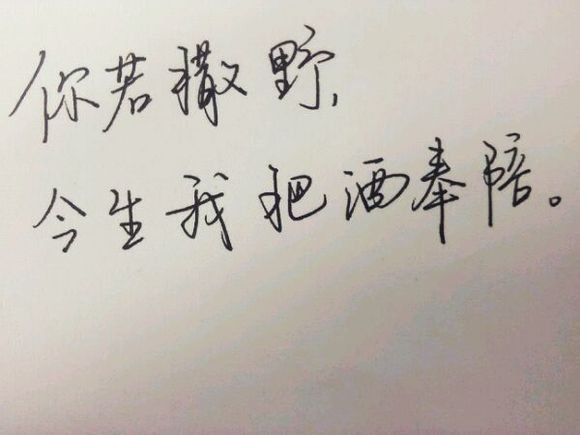 你若撒野,
今生我把酒奉陪。